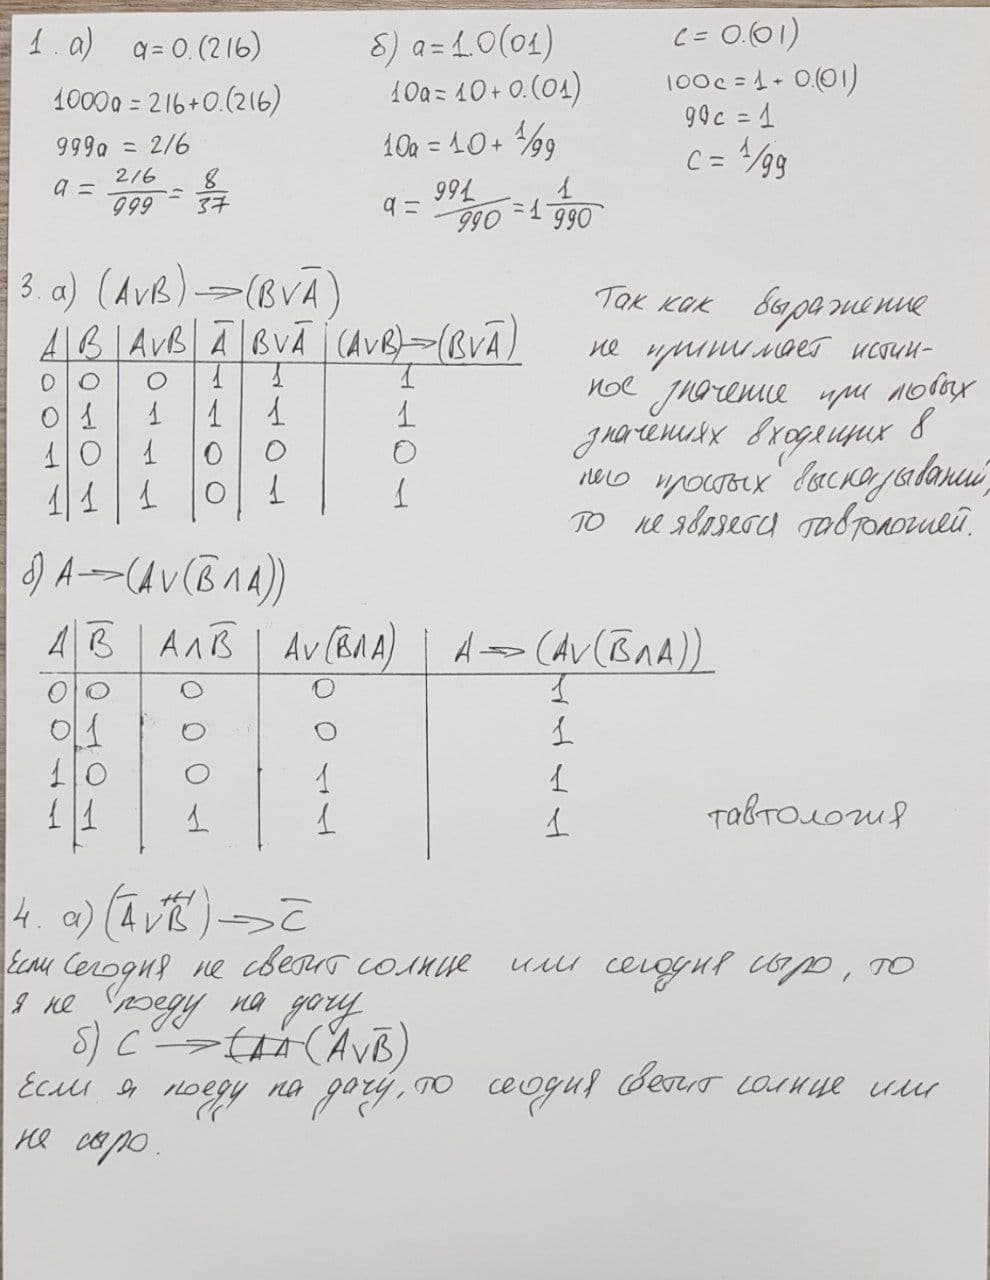 1. а) a = 0.(216)
1000a = 216 + 0.(216)
999a = 216
a = 216/999 = 8/37
б) a = 1.0(01)
10a = 10 + 0.(01)
10a = 10 + 1/99
a = 991/990 = 1 1/990
c = 0.(01)
100c = 1 + 0.(01)
99c = 1
c = 1/99
3. а) (A∨B) → (B∨A̅)
A | B | A∨B | A̅ | B∨A̅ | (A∨B) → (B∨A̅)
0 0 0 1 1 1
0 1 1 1 1 1
1 0 1 0 0 0
1 1 1 0 1 1
Так как выражение
не принимает истин-
ное значение при любых
значениях входящих в
него простых высказываний,
то не является тавтологией.
б) A → (A∨(B̅∧A))
A | B̅ | A∧B̅ | A∨(B̅∧A) | A → (A∨(B̅∧A))
0 0 0 0 1
0 1 0 0 1
1 0 0 1 1
1 1 1 1 1
тавтология
4. а) (A̅∨B) → C̅
Если сегодня не светит солнце или сегодня сыро, то
я не поеду на дачу
б) C → (A∨B̅)
Если я поеду на дачу, то сегодня светит солнце или
не сыро.